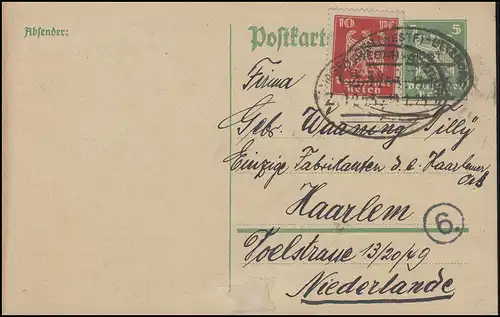 Absender:
Postkarte
10
5
Reich
Firma
Gebr. Waaning Tilly
Einzige Fabrikanten d. e. Haarlemer
Oel
Haarlem
6.
Joelstraue 13/20/49
Niederlande